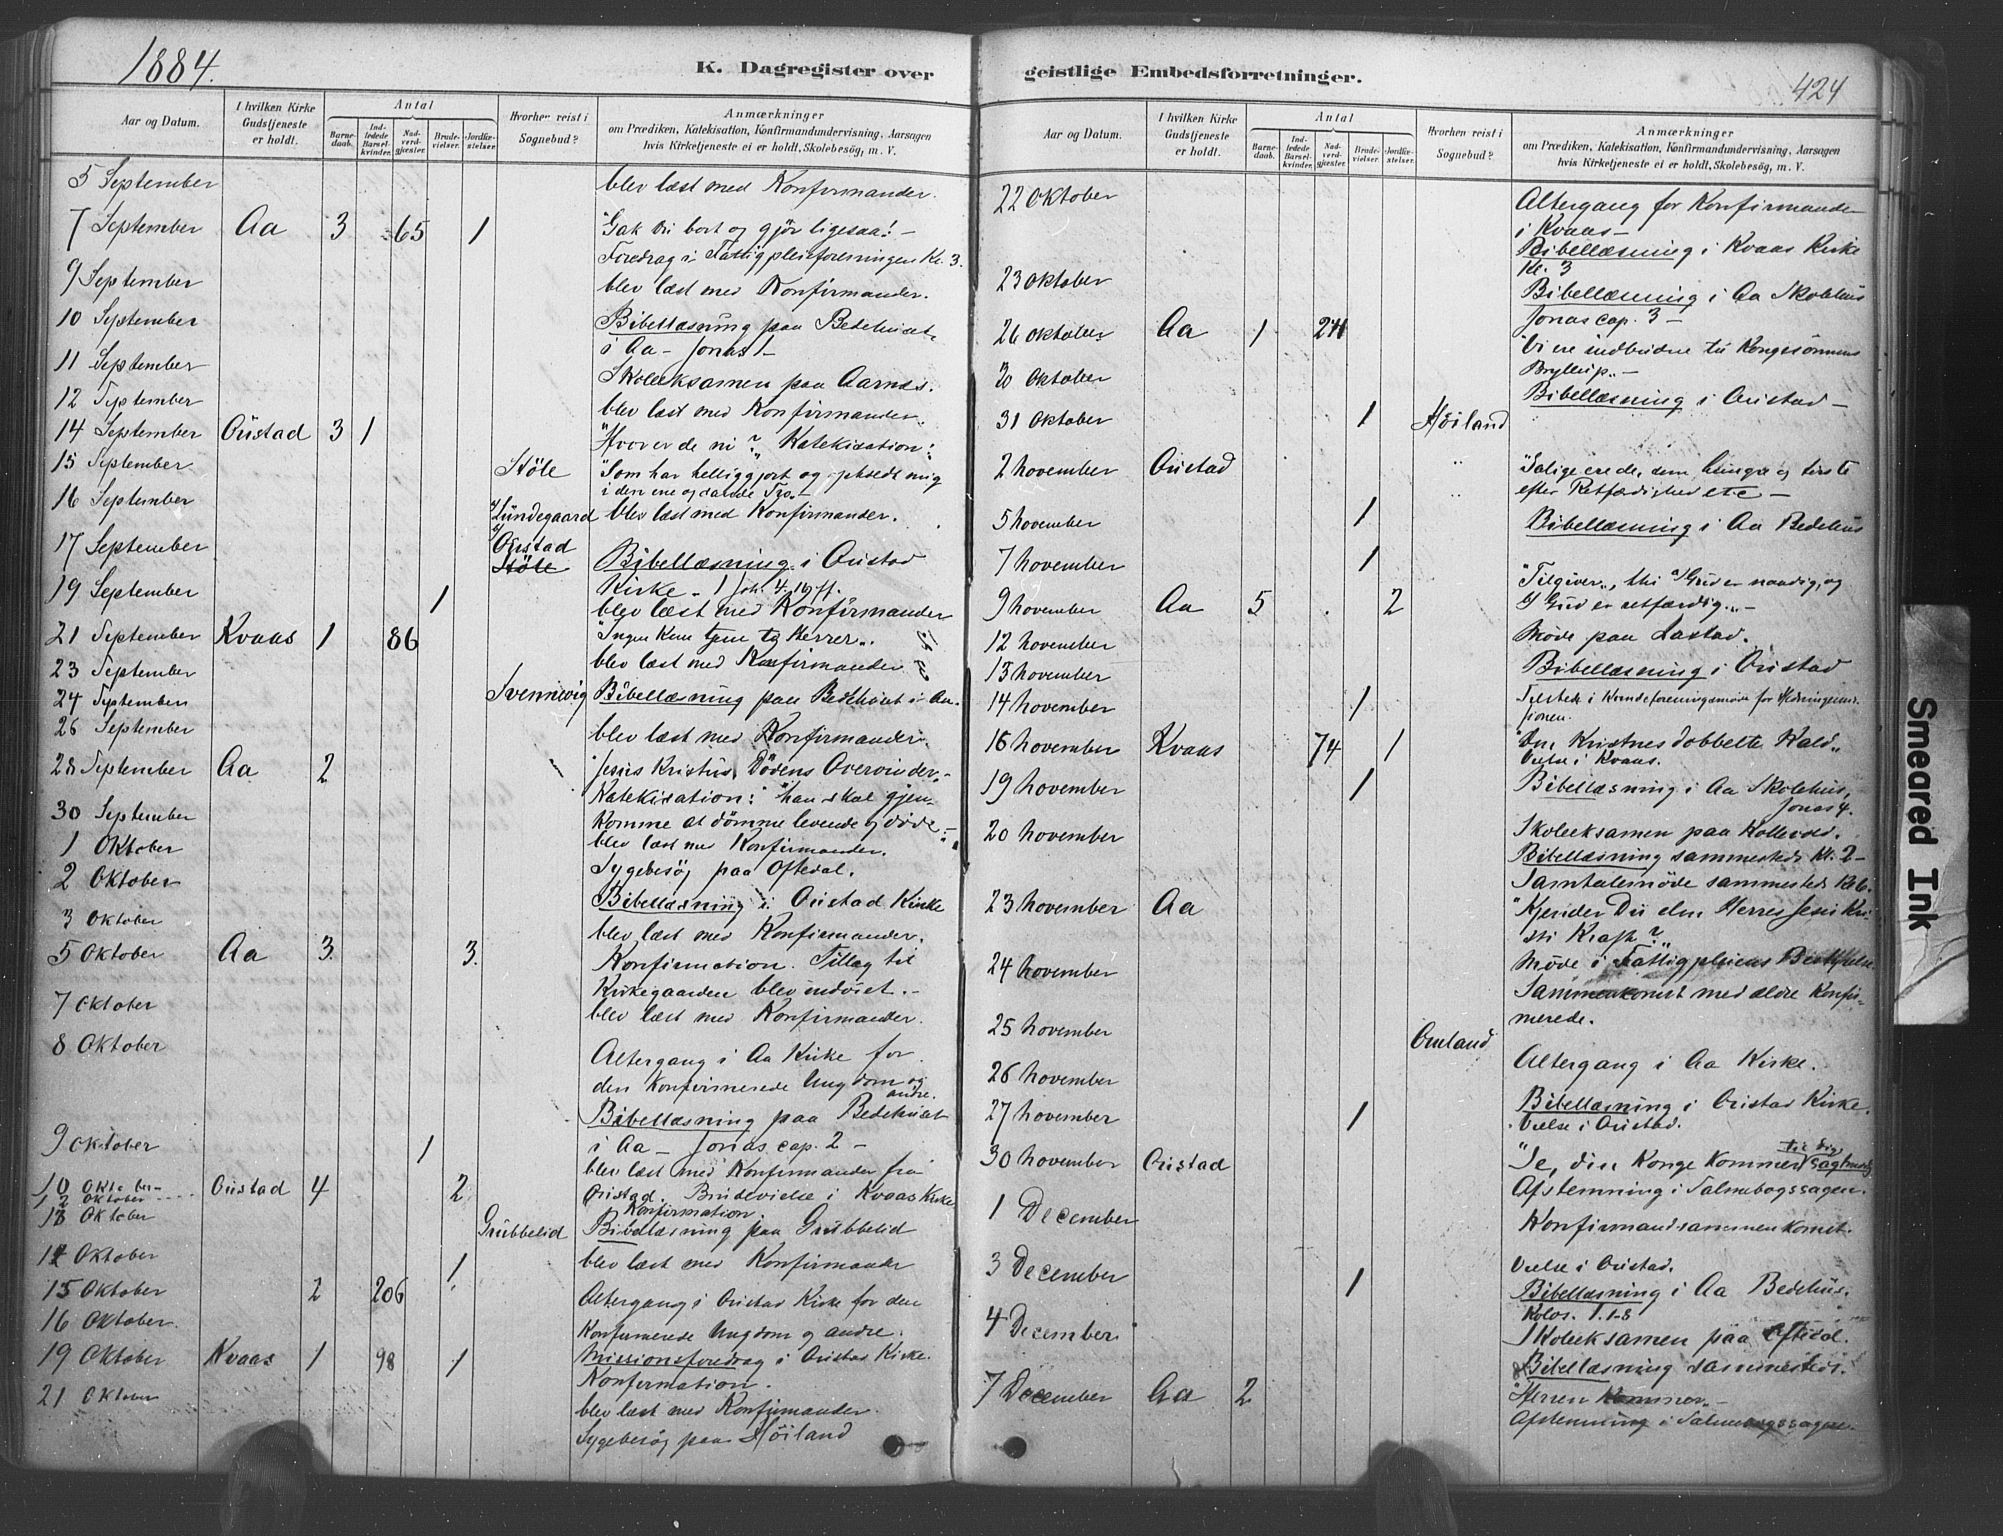 1884.
K. Dagregister over
Aar og Datum.
I hvilken Kirke Gudstjeneste er holdt.
Antal
Barne-daab.
Ind-ledede Barsel-kvinder.
Nad-verd-gjester.
Brude-vielser.
Jordfæ-stelser.
Hvorhen reist i Sognebud?
Anmærkninger
om Prædiken, Katekisation, Konfirmandundervisning, Aarsagen
hvis Kirketjeneste ei er holdt, Skolebesøg, m. V.
5 September blev læst med Konfirmander.
7 September Aa 3 65 1 "Gak du bort og gjør ligesaa! –
Foredrag i Fattigpleieforeningen Kl. 3.
9 September
blev læst med Konfirmander.
10 September Bibellæsning paa Bedehuset
i Aa – Jonas 1 –
11 September
Skoleeksamen paa Aarnes.
12 September
blev læst med Konfirmander.
14 September Oustad 3 1
"Hvor er de ni? Katekisation:
15 September Støle "Som har helliggjort og opholdt mig
i den ene og sande Tro. –
16 September Lundegaard blev læst med Konfirmander.
17 September Oustad
Støle Bibellæsning i Oustad
Kirke – 1 Joh. 4, 16 ff.
19 September 1
blev læst med Konfirmander
21 September Kvaas 1 86 "Ingen kan tjene to Herrer".
blev læst med Konfirmander
23 September
24 September Svennevig Bibellæsning paa Bedehuset i Aa.
26 September
blev læst med Konfirmander.
28 September Aa 2 "Jesus Kristus, Dødens Overvinder". –
Katekisation: "han skal gjen-
30 September
komme at dømme levende og døde –
1 Oktober blev læst med Konfirmander.
2 Oktober Sygebesøg paa Oftedal.
Bibellæsning i Oustad Kirke
3 Oktober
blev læst med Konfirmander.
5 Oktober Aa 3 3. Konfirmation. Tillæg til
Kirkegaarden blev indviet. –
7 Oktober
blev læst med Konfirmander.
8 Oktober
Altergang i Aa Kirke for
den konfirmerede Ungdom og
andre.
Bibellæsning paa Bedehuset
9 Oktober 1 i Aa – Jonas cap. 2 –
blev læst med Konfirmander fra
10 Oktober – Oustad 4 2 Oustad. Brudevielse i Kvaas Kirke
12 Oktober
Konfirmation.
13 Oktober
Grübbelid Bibellæsning paa Grübbelid
14 Oktober
1 blev læst med Konfirmander
15 Oktober 2 206 Altergang i Oustad Kirke for den
16 Oktober.
konfirmerede Ungdom og andre.
19 Oktober Kvaas 1 98 1 Missionsforedrag i Oustad Kirke.
Konfirmation.
21 Oktober
blev læst med Konfirmander.
Sygebesøg paa Høiland
geistlige Embedsforretninger.
424
Aar og Datum.
I hvilken Kirke Gudstjeneste er holdt.
Antal
Barne-daab.
Ind-ledede Barsel-kvinder.
Nad-verd-gjester.
Brude-vielser.
Jordfæ-stelser.
Hvorhen reist i Sognebud?
Anmærkninger
om Prædiken, Katekisation, Konfirmandundervisning, Aarsagen
hvis Kirketjeneste ei er holdt, Skolebesøg, m. V.
22 Oktober Altergang for Konfirmander
i Kvaas –
Bibellæsning i Kvaas Kirke
Kl. 3
23 Oktober
Bibellæsning i Aa Skolehus
Jonas cap. 3 –
26 Oktober Aa 1 24
"Vi ere indbudne til Kongesønnens
Bryllup". –
30 Oktober
Bibellæsning i Oustad –
31 Oktober 1 Høiland
2 November Oustad " "Salige ere de, som hungre og tørste
" efter Retfærdighed etc –
5 November 1 Bibellæsning i Aa Bedehus
7 November 1
"Tilgiver", thi a/ Gud er naadig, og
9 November Aa 5 2 Gud er retfærdig". –
12 November Møde paa Lastad.
13 November Bibellæsning i Oustad
14 November 1
16 November Kvaas 74 1 "Den Kristnes dobbelte Kald".
Vielse i Kvaas.
19 November 1 Bibellæsning i Aa Skolehus,
Jonas 4.
20 November Skoleeksamen paa
Bibellæsning sammesteds Kl. 2 –
Samtalemøde sammesteds Kl. 6.
23 November Aa "Kjender Du den Herres Jesu Kri-
sti Kraft?"
24 November Møde i Fattigpleiens Bestyrelse
Sammenkomst med ældre Konfir-
merede.
25 November Omland
Altergang i Aa Kirke.
26 November
27 November 1 Bibellæsning i Oustad Kirke.
Vielse i Oustad.
30 November Oustad "Se, din Konge kommer til dig sagtmodig
Afstemning i Salmebogssagen.
1 December Konfirmandsammenkomst.
3 December 1 Vielse i Oustad.
Bibellæsning i Aa Bedehus.
Kolos. 1. 1-8
4 December Skoleeksamen paa Oftedal.
Bibellæsning sammesteds.
7 December Aa 2 "Herren kommer". –
Afstemning i Salmebogssagen.
Smeared Ink